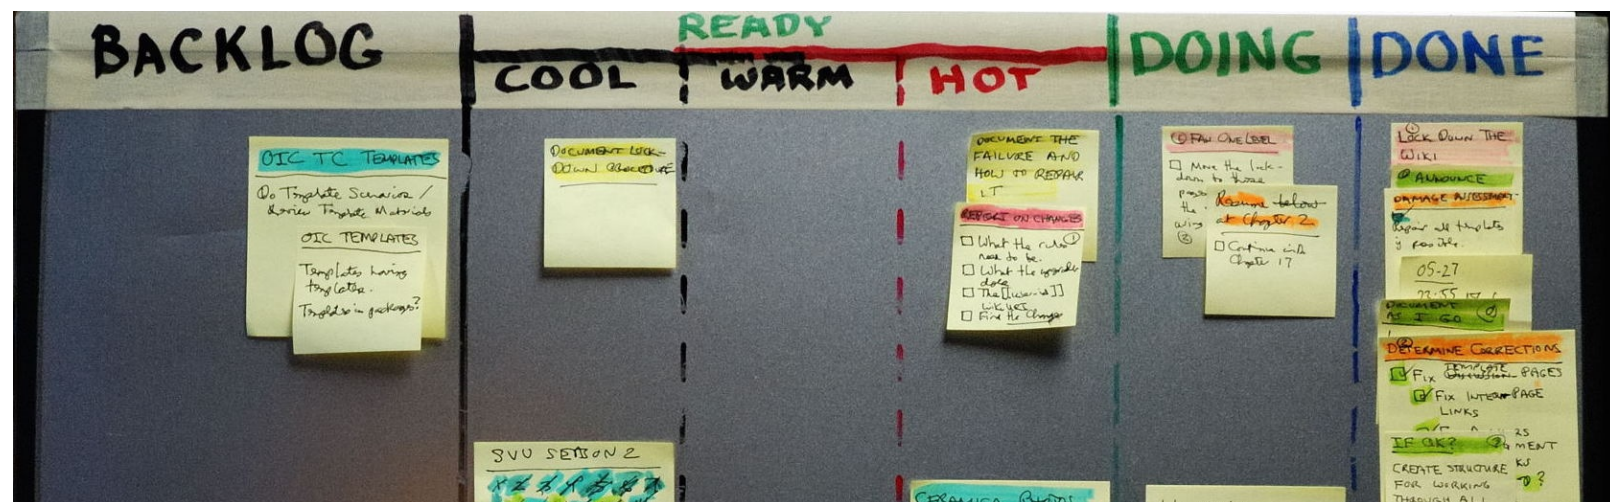 BACKLOG
READY
COOL
WARM
HOT
DOING
DONE
OIC TC TEMPLATES
Do Template Scenarios /
Template Materials
OIC TEMPLATES
Templates having
templates.
Templates in packages?
DOCUMENT LOCK-
DOWN PROCEDURE
SVU SEASON 2
DOCUMENT THE
FAILURE AND
HOW TO REPAIR
IT
REPORT ON CHANGES
What the rules
need to be.
What the upgrader
does
The [[user-id]]
Wiki
Find the Changes
① FAN ONE LEVEL
Move the lock-
down to those
pages
the
②
Resume below
at Chapter 2
Continue with
Chapter 17
①
LOCK DOWN THE
WIKI
② ANNOUNCE
DAMAGE ASSESSMENT
Repair all templates
if possible.
05-27
23:55
DOCUMENT
AS I GO
DETERMINE CORRECTIONS
FIX TEMPLATE PAGES
FIX INTER-PAGE
LINKS
IF OK?
CREATE STRUCTURE
FOR WORKING
THROUGH ALL
CERAMICA PHOTOS